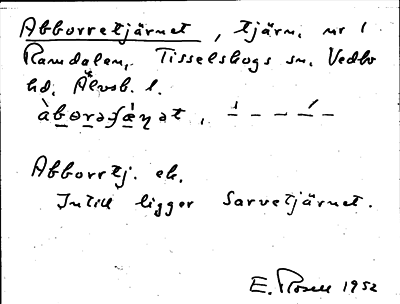 Abborretjärnet, tjärn, nr 1
Ramdalen, Tisselskogs sn, Vedbo
hd, Älvsb. l.
Abborrtj. ek.
Intill ligger Sarvetjärnet.
E. Rosell 1952